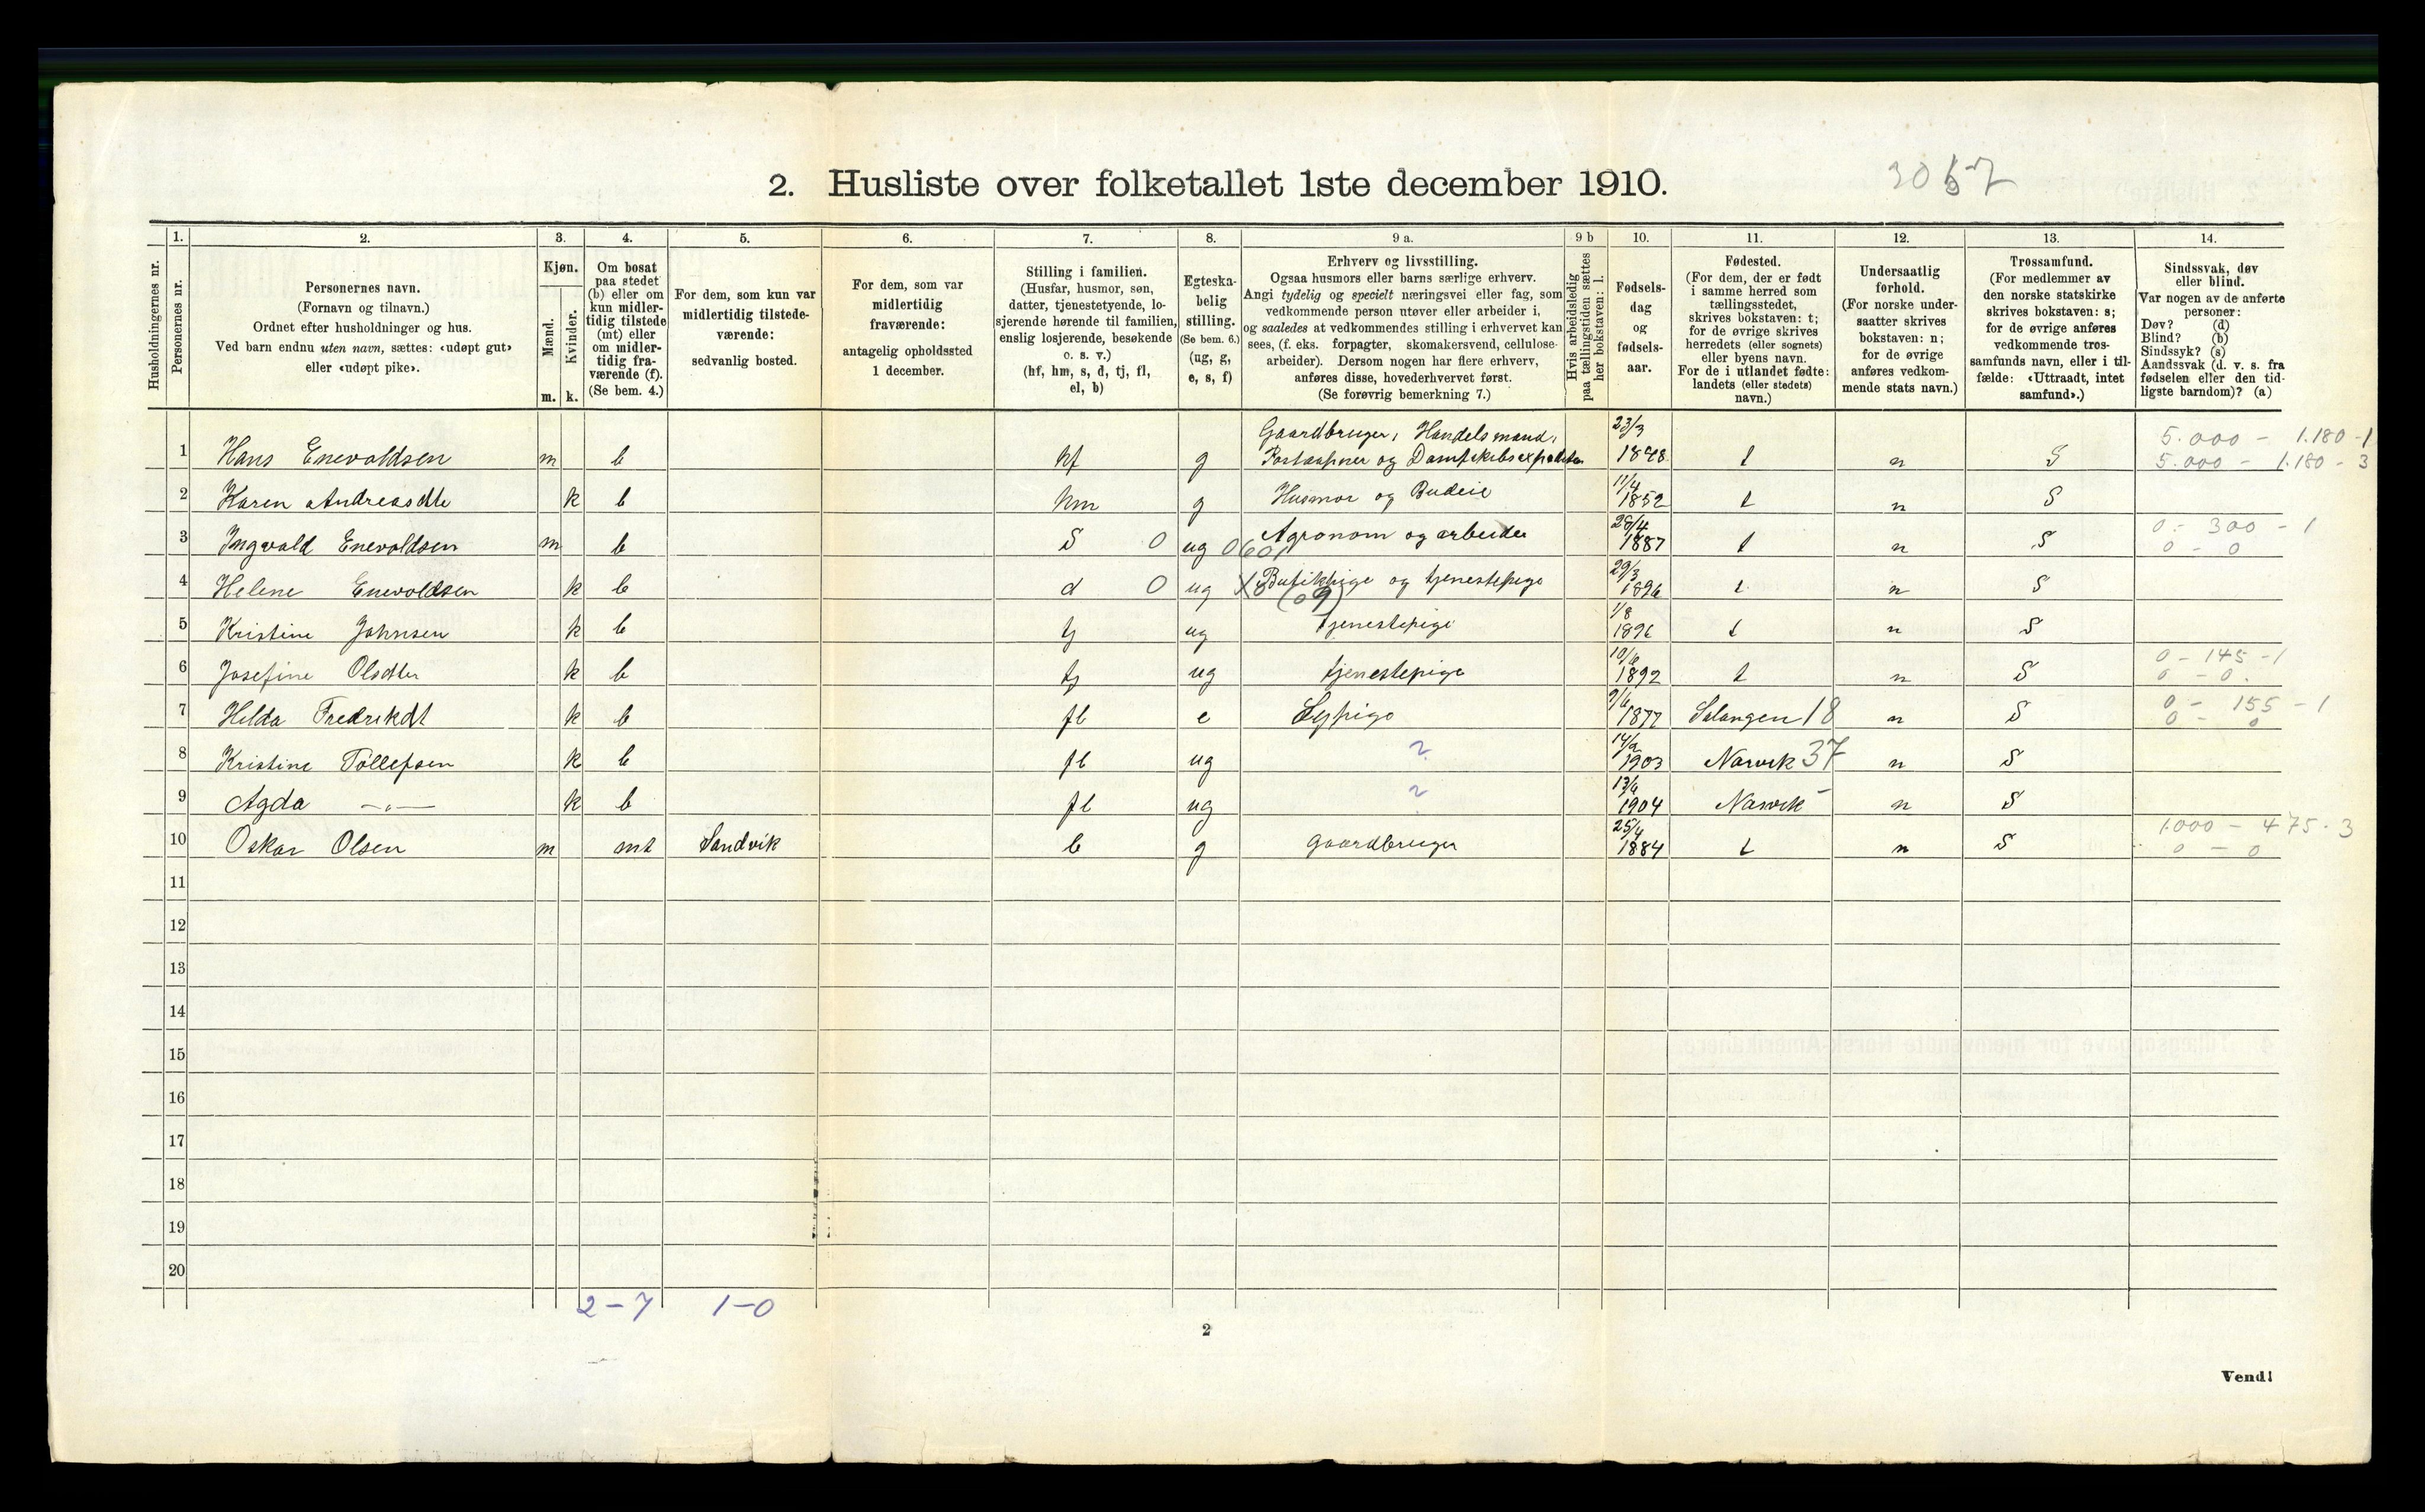 2. Husliste over folketallet 1ste december 1910.
3057
Husholdningernes nr.
1. 2. 3. 4. 5. 6. 7. 8. 9 a. 9 b 10. 11. 12. 13. 14.
Personernes nr.
Personernes navn.
(Fornavn og tilnavn.)
Ordnet efter husholdninger og hus.
Ved barn endnu uten navn, sættes: «udøpt gut»
eller «udøpt pike».
Kjøn.
Mænd.
Kvinder.
m. k.
Om bosat
paa stedet
(b) eller om
kun midler-
tidig tilstede
(mt) eller
om midler-
tidig fra-
værende (f).
(Se bem. 4.)
For dem, som kun var
midlertidig tilstede-
værende:
sedvanlig bosted.
For dem, som var
midlertidig
fraværende:
antagelig opholdssted
1 december.
Stilling i familien.
(Husfar, husmor, søn,
datter, tjenestetyende, lo-
sjerende hørende til familien,
enslig losjerende, besøkende
o. s. v.)
(hf, hm, s, d, tj, fl,
el, b)
Egteska-
belig
stilling.
(Se bem. 6.)
(ug, g,
e, s, f)
Erhverv og livsstilling.
Ogsaa husmors eller barns særlige erhverv.
Angi tydelig og specielt næringsvei eller fag, som
vedkommende person utøver eller arbeider i,
og saaledes at vedkommendes stilling i erhvervet kan
sees, (f. eks. forpagter, skomakersvend, cellulose-
arbeider). Dersom nogen har flere erhverv,
anføres disse, hovederhvervet først.
(Se forøvrig bemerkning 7.)
Hvis arbeidsledig
paa tællingstiden sættes
her bokstaven: l.
Fødsels-
dag
og
fødsels-
aar.
Fødested.
(For dem, der er født
i samme herred som
tællingsstedet,
skrives bokstaven: t;
for de øvrige skrives
herredets (eller sognets)
eller byens navn.
For de i utlandet fødte:
landets (eller stedets)
navn.)
Undersaatlig
forhold.
(For norske under-
saatter skrives
bokstaven: n;
for de øvrige
anføres vedkom-
mende stats navn.)
Trossamfund.
(For medlemmer av
den norske statskirke
skrives bokstaven: s;
for de øvrige anføres
vedkommende tros-
samfunds navn, eller i til-
fælde: «Uttraadt, intet
samfund».)
Sindssvak, døv
eller blind.
Var nogen av de anførte
personer:
Døv? (d)
Blind? (b)
Sindssyk? (s)
Aandssvak (d. v. s. fra
fødselen eller den tid-
ligste barndom)? (a)
Gaardbruger, Handelsmand, 23/3 5.000 - 1.180 - 1
1 Hans Enevoldsen m b hf g Postaapner og Dampskibsexpeditør 1848 t n S 5.000 - 1.180 - 3
11/4
2 Karen Andreasdtr k b hm g Husmor og Budeie 1852 t n S
28/4 0 - 300 - 1
3 Ingvald Enevoldsen m b S 0 ug Agronom og arbeider 1887 t n S 0 - 0
29/3
4 Helene Enevoldsen k b d 0 ug Butikpige og tjenestepige 1896 t n S
(09)
1/8
5 Kristine Johnsen k b tj ug Tjenestepige 1896 t n S
10/6 0 - 145 - 1
6 Josefine Olsdtter k b tj ug tjenestepige 1892 t n S 0 - 0.
9/6 0 - 155 - 1
7 Hilda Fredrikdt k b fl e Sypige 1877 Salangen 18 n S 0 - 0
14/2
8 Kristine Tollefsen k b fl ug ? 1903 Narvik 37 n S
13/6
9 Agda —"— k b fl ug ? 1904 Narvik - n S
25/4 1.000 - 475 - 3
10 Oskar Olsen m mt Sandvik b g gaardbruger 1884 t n S 0 - 0
11
12
13
14
15
16
17
18
19
20
2-7 1-0
2
Vend!